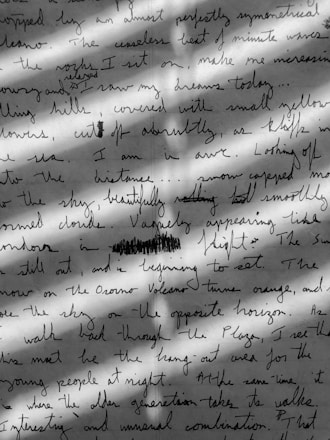 topped by an almost perfectly symmetrical
The ceaseless beat of minute waves
the rocks I sit on make me increasin
relaxed
and I saw my dreams today...
lling hills, covered with small yellow
lowers, cut off abruptly, as bluffs
sea. I am in awe. Looking off
nto the distance... snow capped mo
the sky beautifully smoothly
ormed clouds. Vaguely appearing like
ondors in flight. The Su
s still out, and is beginning to set. The
now on the Osorno Volcano turns orange, and s
the sky on the opposite horizon. As
walk back through the Plaza, I see tha
his must be the hang-out area for the
young people at night. At the same time, it
s where the older generation takes its walks.
Interesting and unusual combination. That